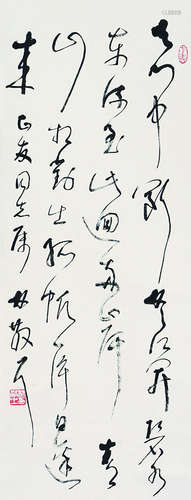 天门中断楚江開碧水
東流至此迴两岸青
山相對出孤帆一片日邊
来 正友同志属 林散耳